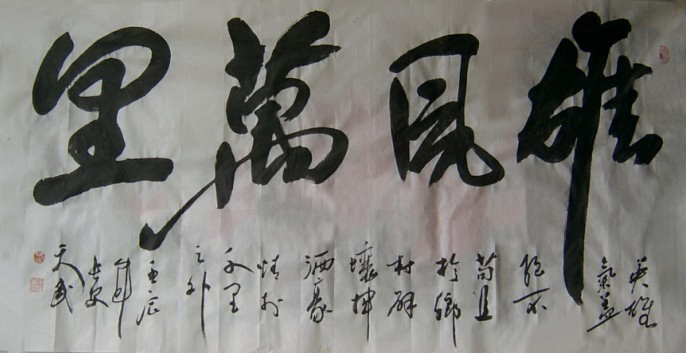 雄風萬里
英雄
氣蓋
絕不
苟且
於鄉
村僻
壤揮
洒豪
情於
千里
之外
壬辰
年
長安
天武